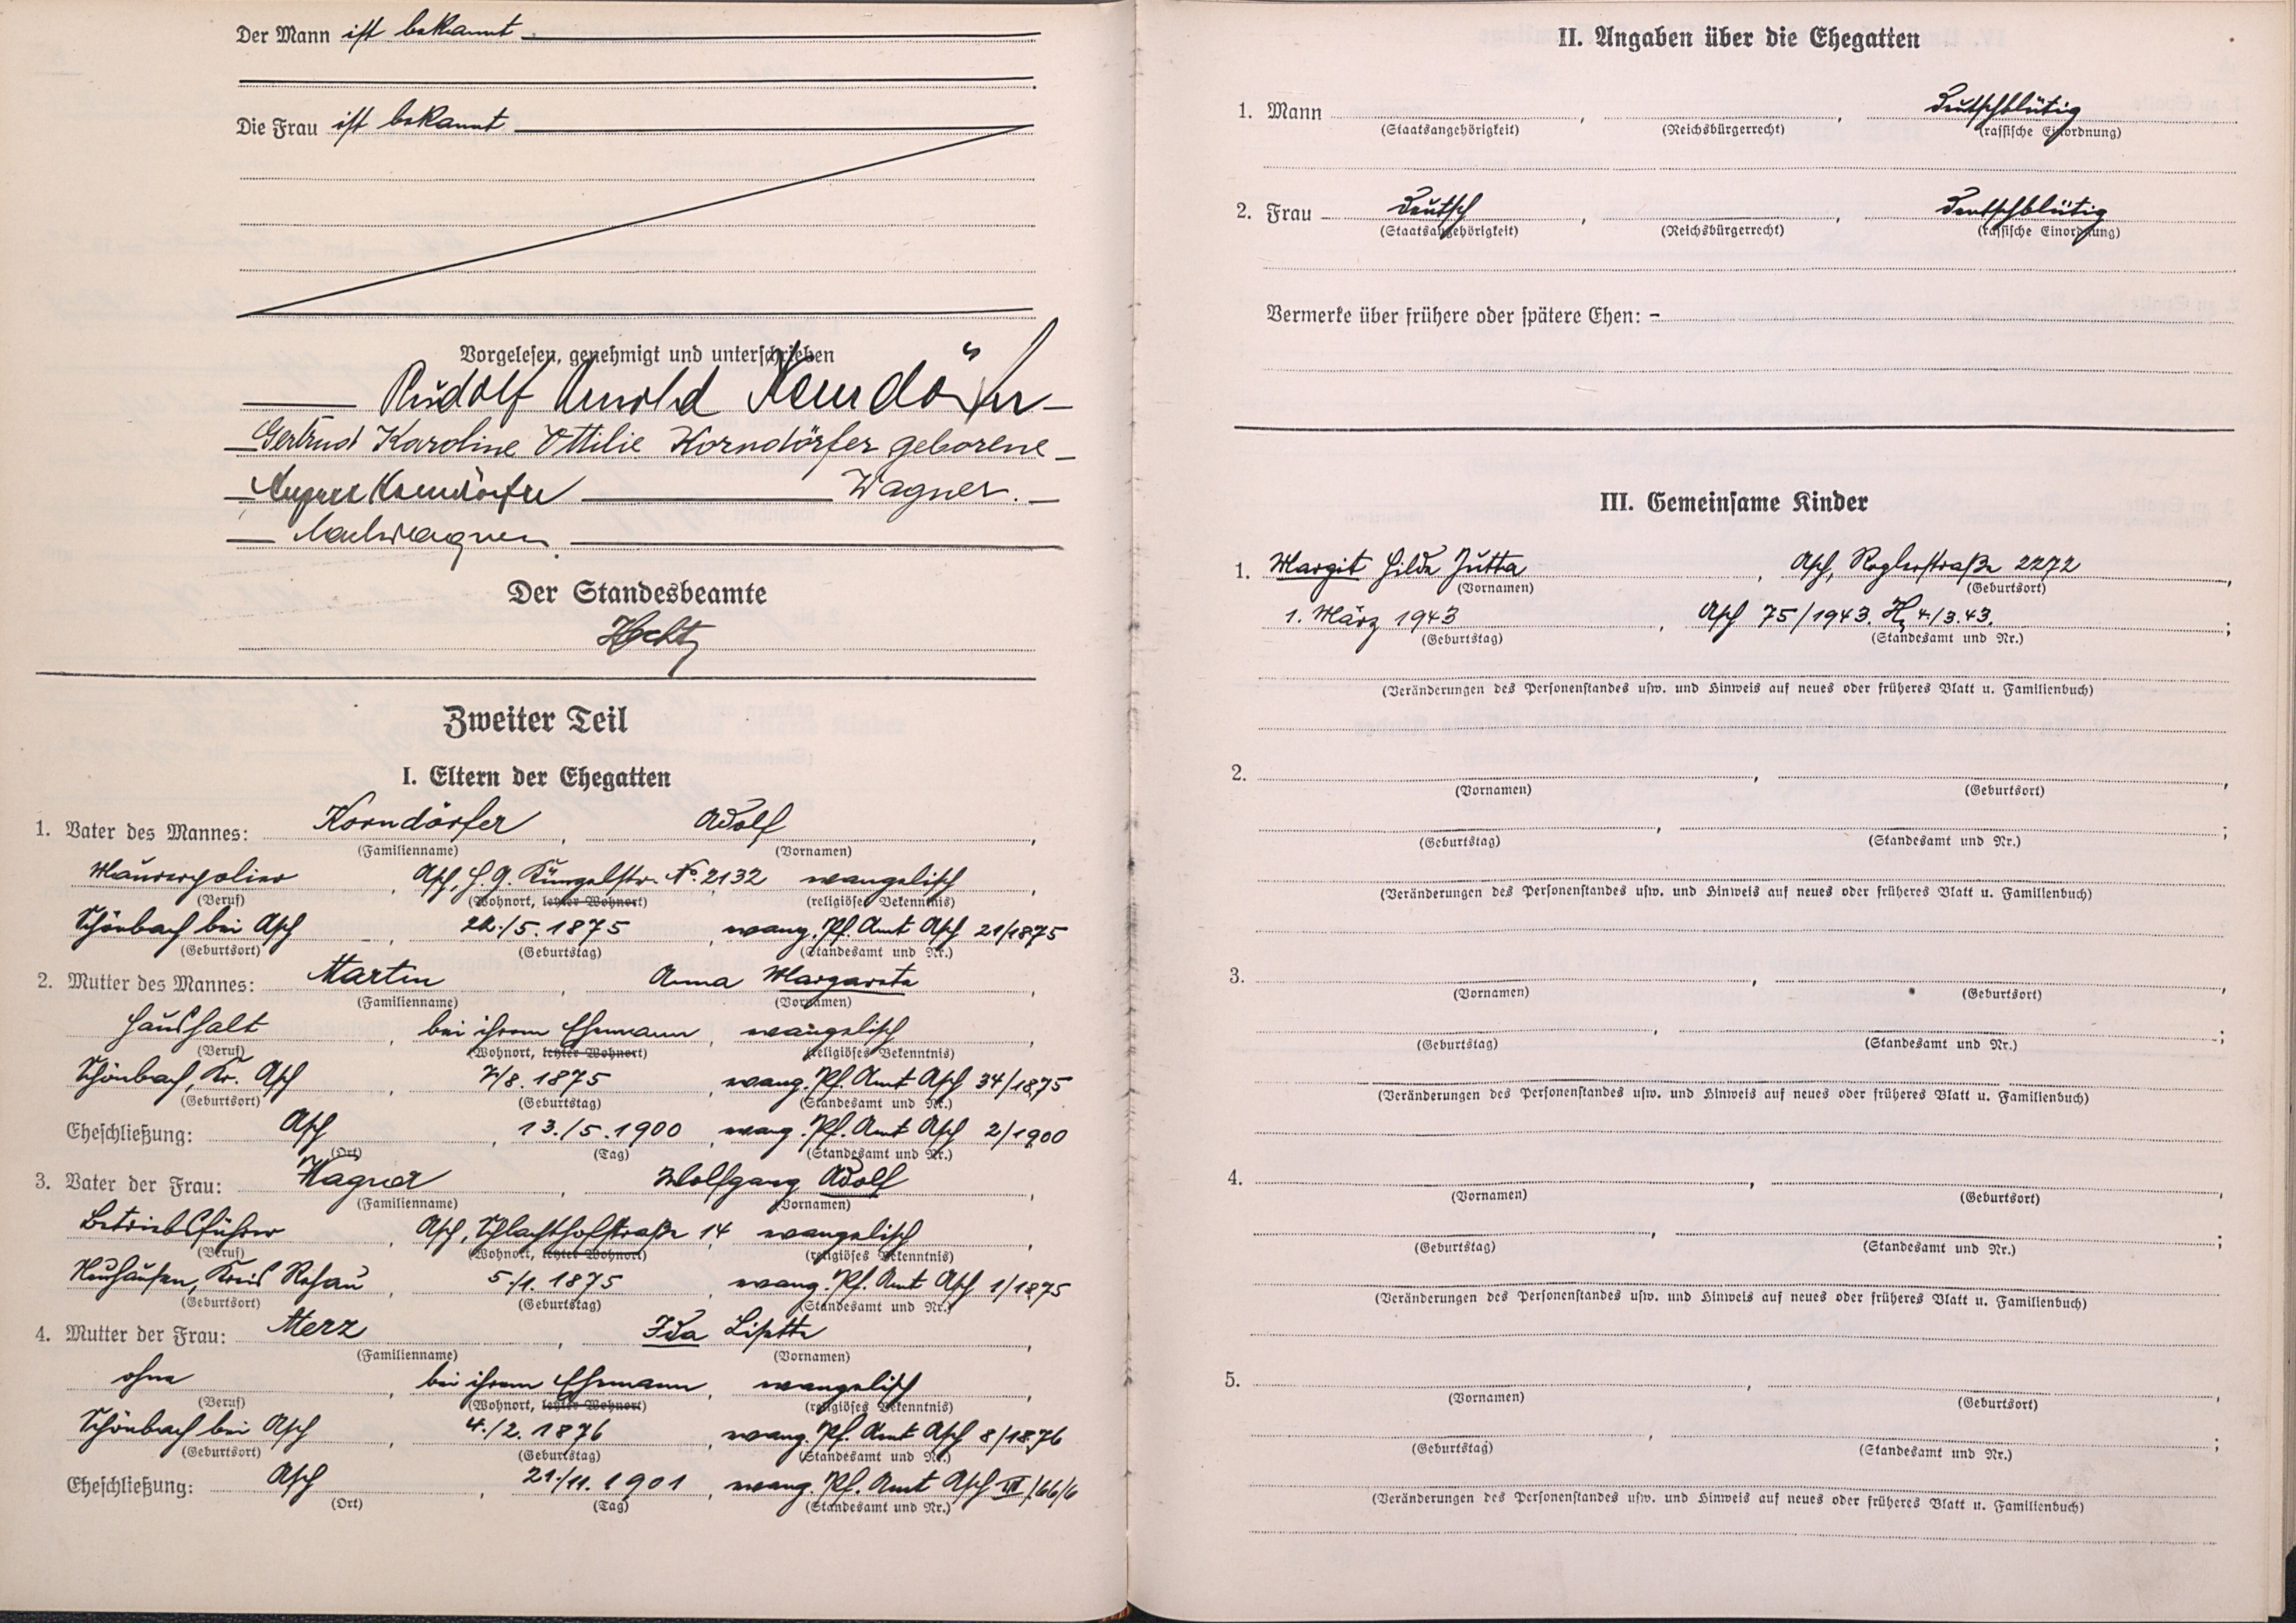 Der Mann ist bekannt
Die Frau ist bekannt
Vorgelesen, genehmigt und unterschrieben
Rudolf Arnold Korndörfer
Gertrud Karoline Ottilie Korndörfer geborene
Korndörfer Wagner.
Wagner
Der Standesbeamte
Zweiter Teil
I. Eltern der Ehegatten
1. Vater des Mannes: Korndörfer, Adolf,
(Familienname) (Vornamen)
Maurerpolier, Asch, H. G. Künzelstr. No. 2132 evangelisch,
(Beruf) (Wohnort, letzter Wohnort) (religiöses Bekenntnis)
Schönbach bei Asch, 22./5. 1875, evang. Pf. Amt Asch 21/1875
(Geburtsort) (Geburtstag) (Standesamt und Nr.)
2. Mutter des Mannes: Martin, Anna Margareta,
(Familienname) (Vornamen)
Haushalt, bei ihrem Ehemann, evangelisch,
(Beruf) (Wohnort, letzter Wohnort) (religiöses Bekenntnis)
Schönbach, Kr. Asch, 7/8. 1875, evang. Pf. Amt Asch 34/1875
(Geburtsort) (Geburtstag) (Standesamt und Nr.)
Eheschließung: Asch, 13./5. 1900, evang. Pf. Amt Asch 2/1900
(Ort) (Tag) (Standesamt und Nr.)
3. Vater der Frau: Wagner, Wolfgang Adolf,
(Familienname) (Vornamen)
Betriebsführer, Asch, Schlachthofstraße 14, evangelisch,
(Beruf) (Wohnort, letzter Wohnort) (religiöses Bekenntnis)
Neuhausen, Kreis Rehau, 5./1. 1875, evang. Pf. Amt Asch 1/1875
(Geburtsort) (Geburtstag) (Standesamt und Nr.)
4. Mutter der Frau: Merz, Ida Lisette,
(Familienname) (Vornamen)
ohne, bei ihrem Ehemann, evangelisch,
(Beruf) (Wohnort, letzter Wohnort) (religiöses Bekenntnis)
Schönbach bei Asch, 4./2. 1876, evang. Pf. Amt Asch 8/1876
(Geburtsort) (Geburtstag) (Standesamt und Nr.)
Eheschließung: Asch, 21./11. 1901, evang. Pf. Amt Asch III/66/6
(Ort) (Tag) (Standesamt und Nr.)
II. Angaben über die Ehegatten
1. Mann , , Deutschblütig
(Staatsangehörigkeit) (Reichsbürgerrecht) (rassische Einordnung)
2. Frau Deutsch, , Deutschblütig
(Staatsangehörigkeit) (Reichsbürgerrecht) (rassische Einordnung)
Vermerke über frühere oder spätere Ehen: -
III. Gemeinsame Kinder
1. Margit Hilde Jutta, Asch, Roglerstraße 2272,
(Vornamen) (Geburtsort)
1. März 1943, Asch 75/1943. 4/3.43.;
(Geburtstag) (Standesamt und Nr.)
(Veränderungen des Personenstandes usw. und Hinweis auf neues oder früheres Blatt u. Familienbuch)
2. , ,
(Vornamen) (Geburtsort)
, ;
(Geburtstag) (Standesamt und Nr.)
(Veränderungen des Personenstandes usw. und Hinweis auf neues oder früheres Blatt u. Familienbuch)
3. , ,
(Vornamen) (Geburtsort)
, ;
(Geburtstag) (Standesamt und Nr.)
(Veränderungen des Personenstandes usw. und Hinweis auf neues oder früheres Blatt u. Familienbuch)
4. , ,
(Vornamen) (Geburtsort)
, ;
(Geburtstag) (Standesamt und Nr.)
(Veränderungen des Personenstandes usw. und Hinweis auf neues oder früheres Blatt u. Familienbuch)
5. , ,
(Vornamen) (Geburtsort)
, ;
(Geburtstag) (Standesamt und Nr.)
(Veränderungen des Personenstandes usw. und Hinweis auf neues oder früheres Blatt u. Familienbuch)